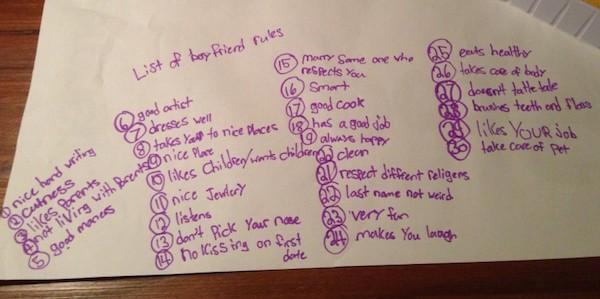 List of boyfriend rules
1 nice hand writing
2 cutness
3 likes Parents
4 not living with Parents
5 good maners
6 good artist
7 dresses well
8 takes you to nice places
9 nice Place
10 likes Children/wants children
11 nice Jewlery
12 listens
13 don't Pick Your nose
14 no kissing on first
date
15 marry some one who
respects You
16 Smart
17 good cook
18 has a good job
19 always happy
20 clean
21 respect diffrent religens
22 last name not weird
23 very fun
24 makes You laugh
25 eats healthy
26 takes care of body
27 doesn't tattle tale
28 brushes teeth and floss
29 likes YOUR job
30 take care of pet